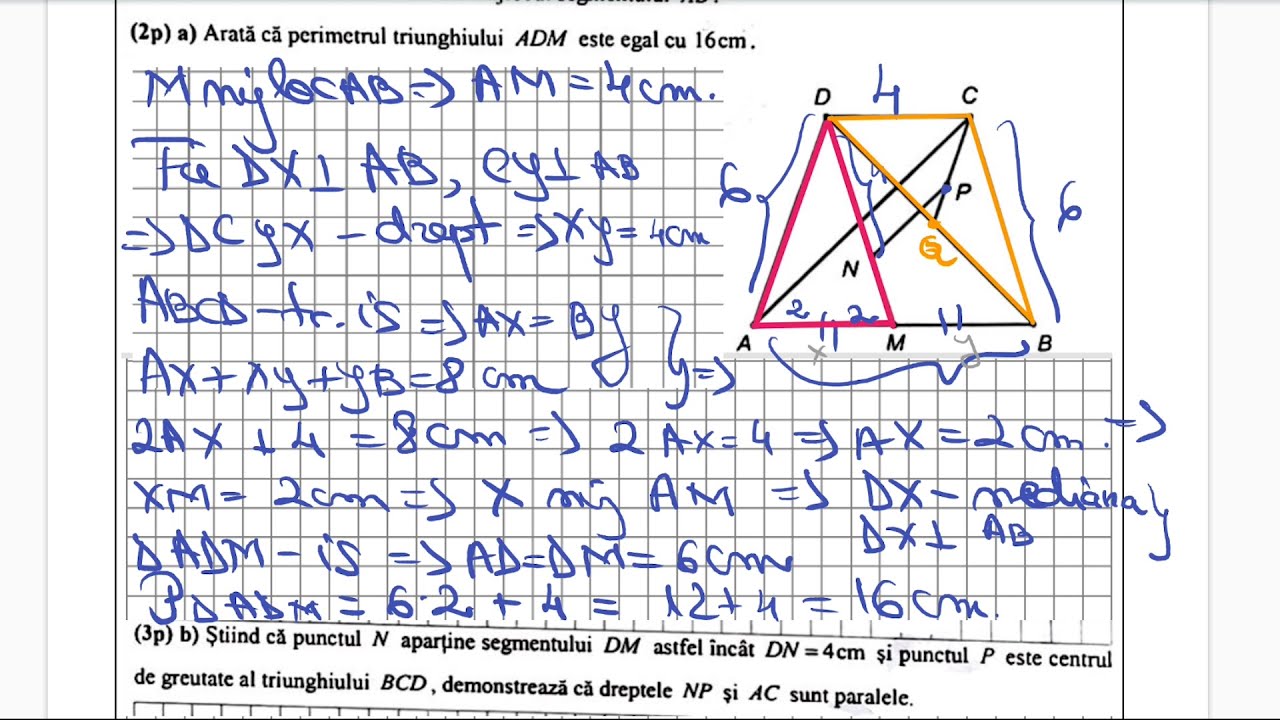 (2p) a) Arată că perimetrul triunghiului ADM este egal cu 16cm.
M mij loc AB => AM = 4 cm.
Fie DX ⊥ AB, CY ⊥ AB
=> DCYX - drept => XY = 4cm
ABCD - tr. is => AX = BY
AX + XY + YB = 8 cm } =>
2AX + 4 = 8 cm => 2 AX = 4 => AX = 2 cm. =>
XM = 2 cm => X mij AM => DX - mediana }
DX ⊥ AB
ΔADM - is => AD = DM = 6 cm
PΔADM = 6·2 + 4 = 12 + 4 = 16 cm.
D 4 C
6 4 P 6
N G
2 2
A x M y B
(3p) b) Știind că punctul N aparține segmentului DM astfel încât DN = 4cm și punctul P este centrul
de greutate al triunghiului BCD, demonstrează că dreptele NP și AC sunt paralele.